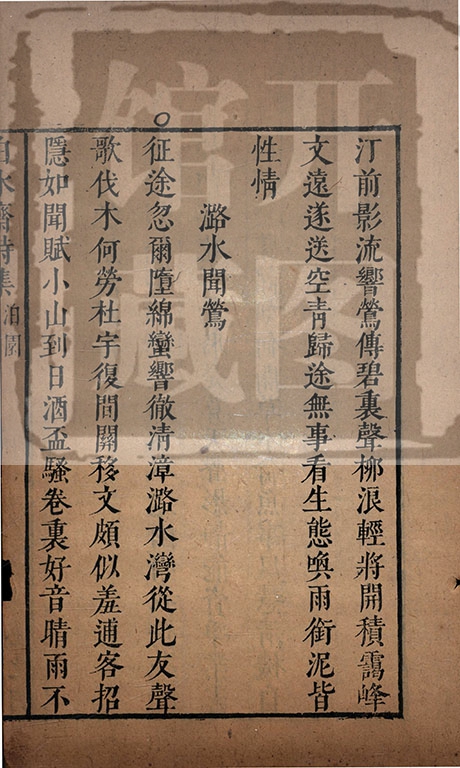 汀前影流響鶯傳碧裏聲柳浪輕將開積靄峰
文遠遂送空青歸途無事看生態喚雨銜泥皆
性情
潞水聞鶯
征途忽爾墮綿蠻響徹清漳潞水灣從此友聲
歌伐木何勞杜宇復間關移文頗似羞逋客招
隱如聞賦小山到日酒盃騷卷裏好音晴雨不
白水齋詩集 泊園